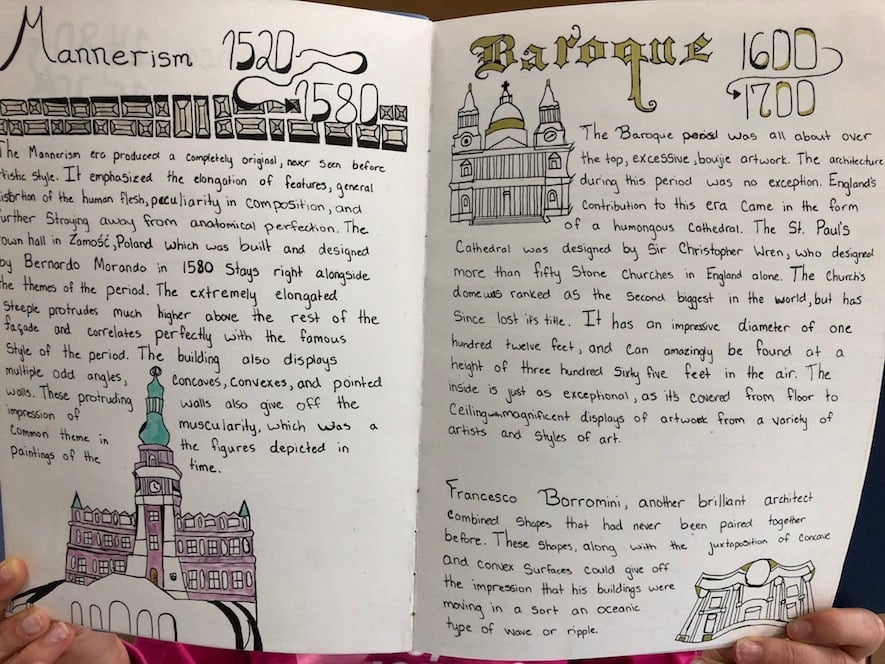 Mannerism 1520
1580
The Mannerism era produced a completely original, never seen before
tistic style. It emphasized the elongation of features, general
istortion of the human flesh, peculiarity in composition, and
urther straying away from anatomical perfection. The
own hall in Zamość, Poland which was built and designed
by Bernardo Morando in 1580 stays right alongside
the themes of the period. The extremely elongated
steeple protrudes much higher above the rest of the
façade and correlates perfectly with the famous
style of the period. The building also displays
multiple odd angles, concaves, convexes, and pointed
walls. These protruding walls also give off the
impression of muscularity, which was a
common theme in the figures depicted in
paintings of the time.
Baroque 1600
1700
The Baroque period was all about over
the top, excessive, boujie artwork. The architecture
during this period was no exception. England's
contribution to this era came in the form
of a humongous cathedral. The St. Paul's
Cathedral was designed by Sir Christopher Wren, who designed
more than fifty stone churches in England alone. The church's
dome was ranked as the second biggest in the world, but has
since lost its title. It has an impressive diameter of one
hundred twelve feet, and can amazingly be found at a
height of three hundred sixty five feet in the air. The
inside is just as exceptional, as it's covered from floor to
ceiling with magnificent displays of artwork from a variety of
artists and styles of art.
Francesco Borromini, another brilliant architect
combined shapes that had never been paired together
before. These shapes, along with the juxtaposition of concave
and convex surfaces could give off
the impression that his buildings were
moving in a sort an oceanic
type of wave or ripple.